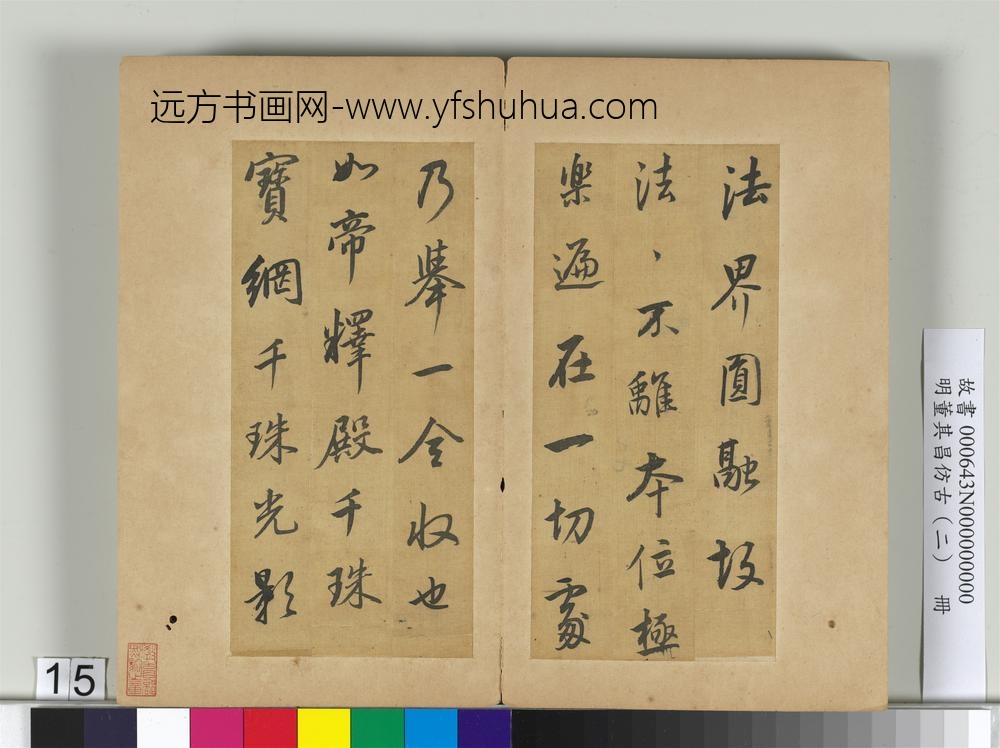 远方书画网-www.yfshuhua.com
法界圓融故
法、不離本位極
樂遍在一切處
乃舉一全收也
如帝釋殿千珠
寶網千珠光影
故書000643N000000000
明董其昌仿古(二) 冊
15